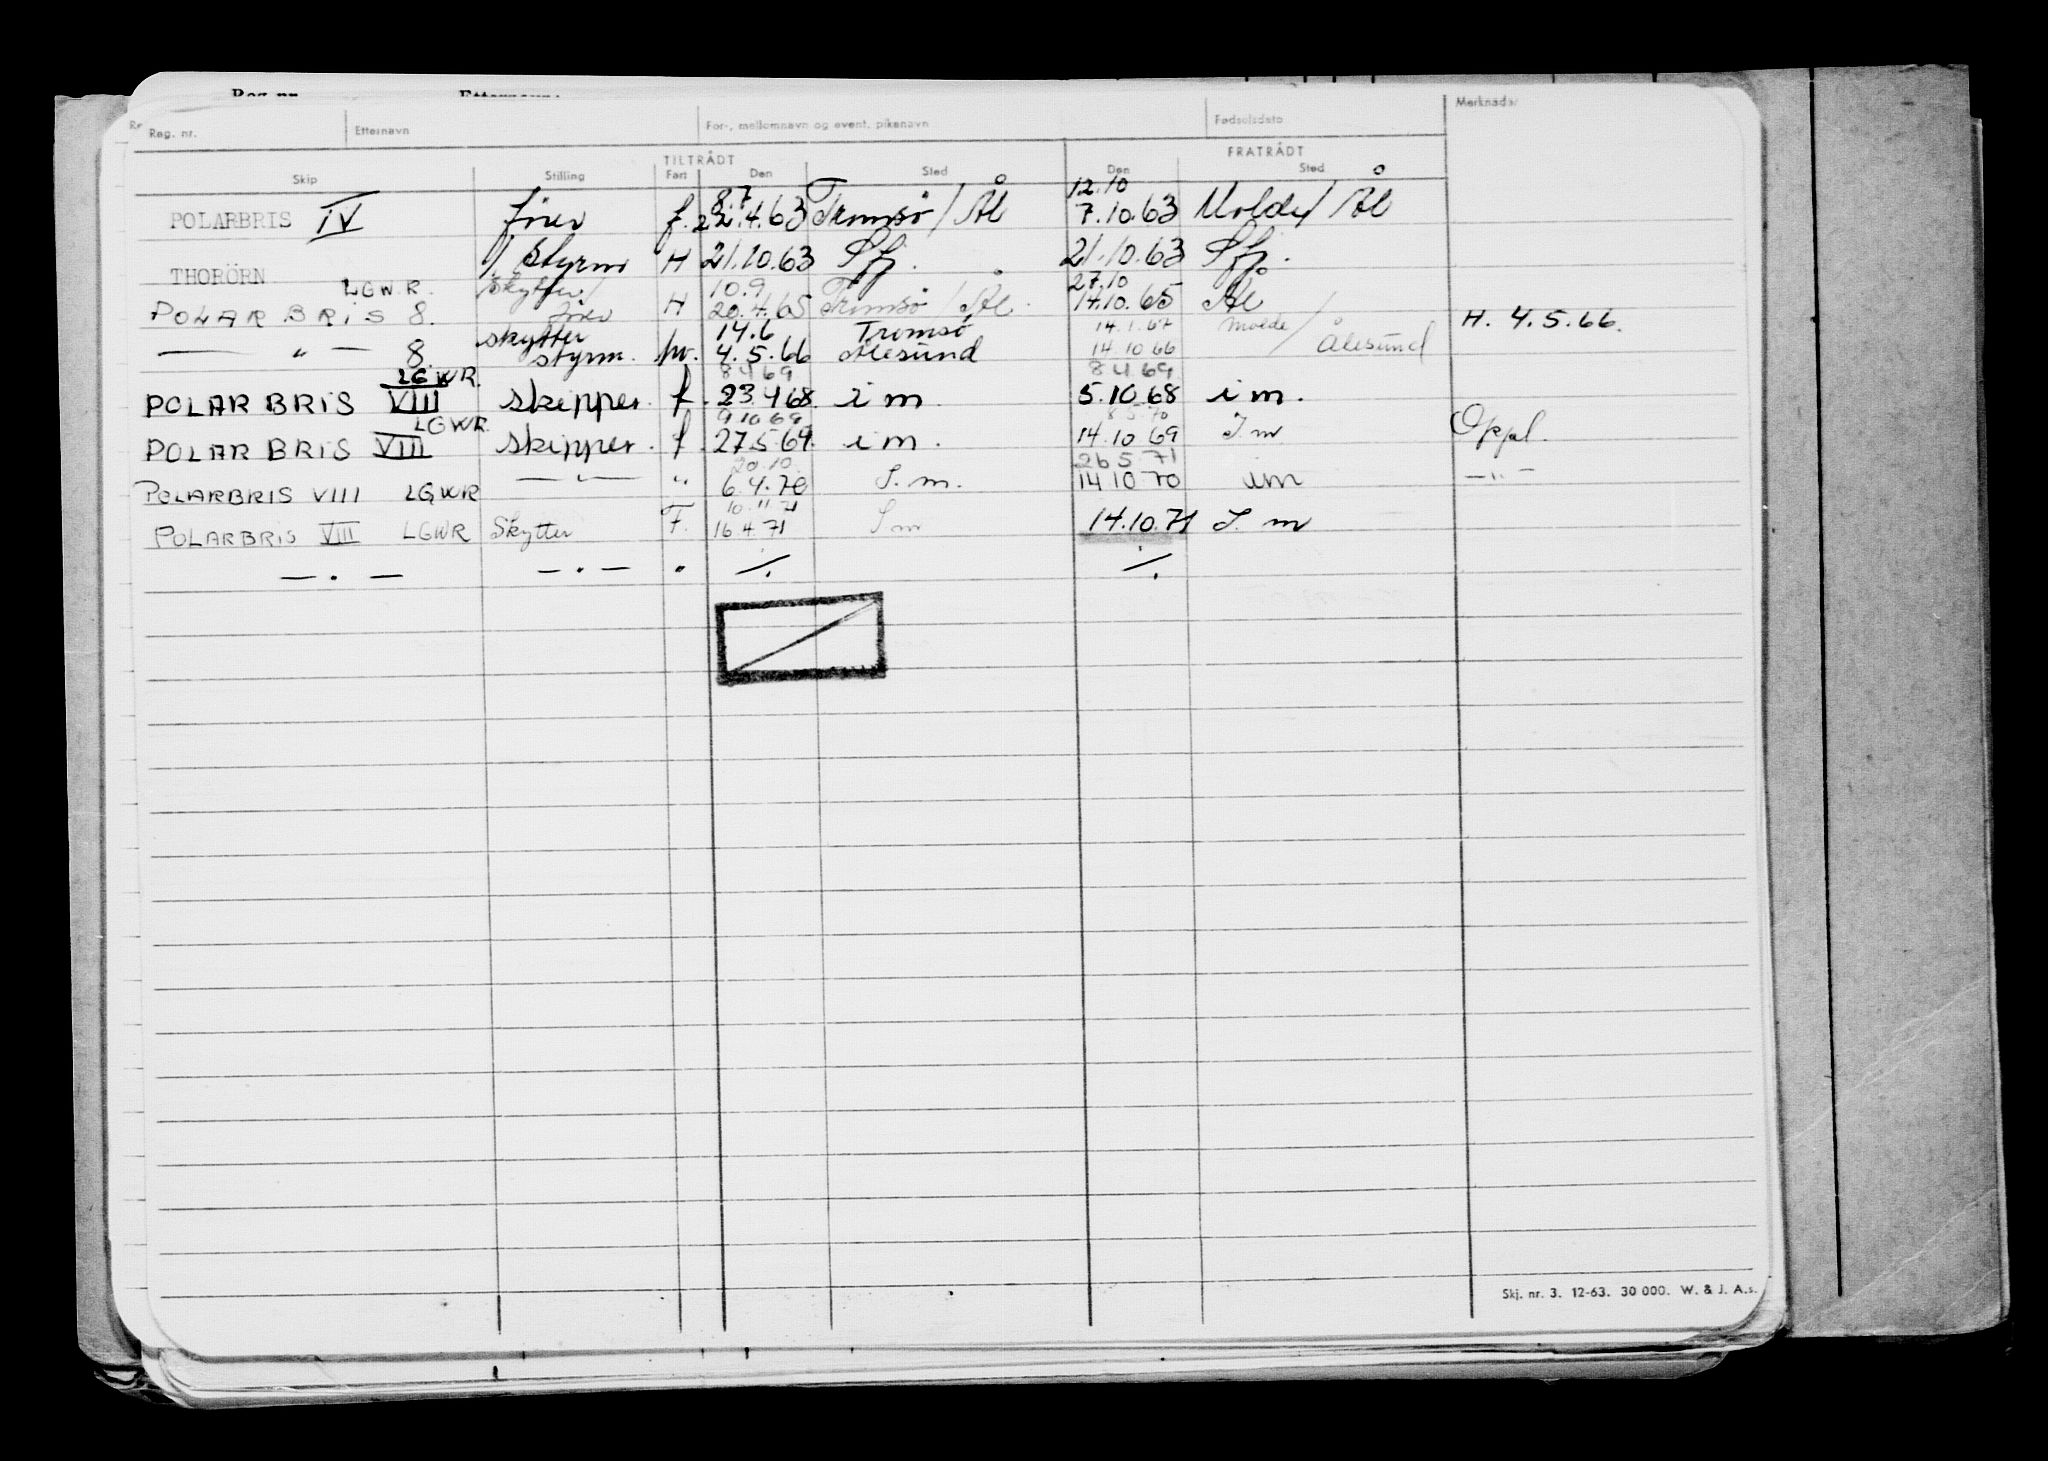 Reg. nr. Etternavn For-, mellomnavn og event. pikenavn Fødselsdato Merknader
TILTRÅDT FRATRÅDT
Skip Stilling Fart Den Sted Den Sted
8.7 12.10
POLARBRIS IV fører f. 22.4.63 Tromsø / Ål 7.10.63 Molde / Ål
THORÖRN styrm H 21.10.63 Sfj. 21.10.63 Sfj.
LGWR. Skytter/ 10.9 27.10
POLARBRIS 8. fører H 20.4.65 Tromsø / Ål. 14.10.65 Ål
skytter 14.6 Tromsø 14.1.67 Molde/
— " — 8. styrm. 4.5.66 Ålesund 14.10.66 Ålesund H. 4.5.66.
LGWR. 8 4 69 8 4 69
POLARBRIS VIII skipper. f. 23.4.68. i m. 5.10.68 i m.
LGWR 9.10.69 8.5.70
POLARBRIS VIII skipper. f. 27.5.69. i m. 14.10.69 I. m Oppl.
20.10. 26 5 71
POLARBRIS VIII LGWR — " — " 6.4.70 I. m. 14 10 70 i m — " —
10.11.71
POLARBRIS VIII LGWR Skytter F. 16.4.71 I m 14.10.71 I. m
— . — — . — " ./. ./.
Skj. nr. 3. 12-63. 30 000. W. & J. A.s.